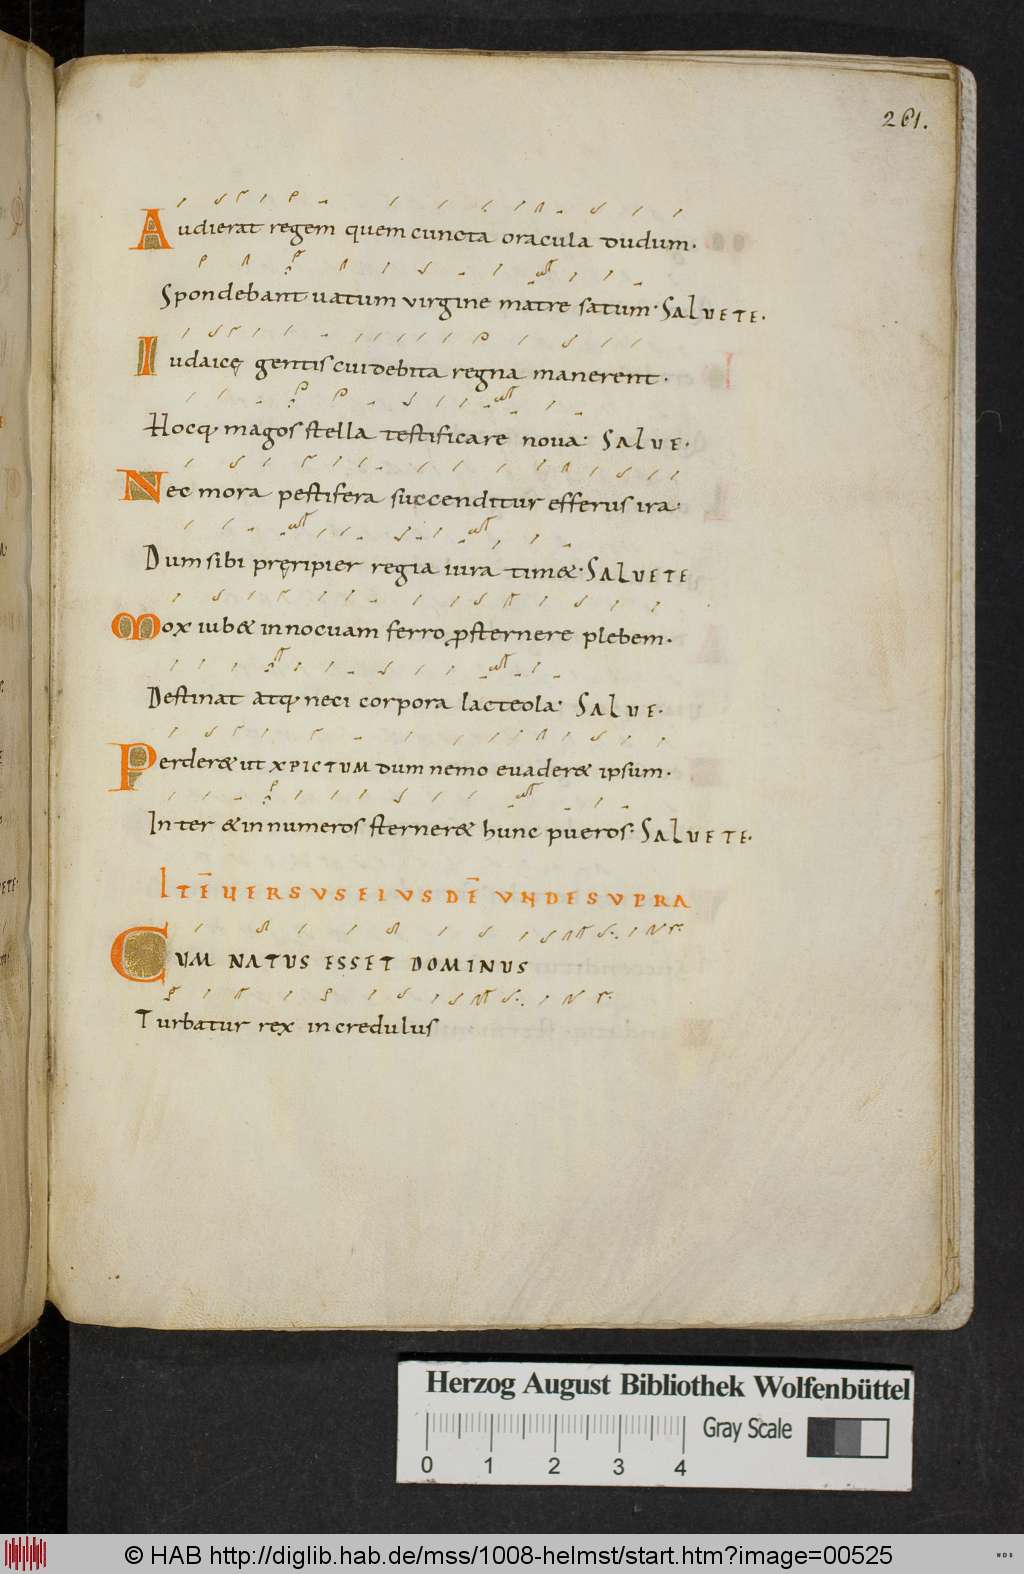 261.
Audierat regem quem cuncta oracula dudum.
Spondebant uatum virgine matre satum. SALUETE.
Iudaicę gentis cui debita regna manerent.
Hocq; magos stella testificare nova. SALUE.
Nec mora pestifera succenditur efferus ira.
Dum sibi pręripier regia iura tim&. SALUETE
Mox iub& innocuam ferro ꝓsternere plebem.
Destinat atq; neci corpora lacteola. SALUE.
Perder& ut XPICTUM dum nemo euader& ipsum.
Inter & innumeros sterner& hunc pueros. SALUETE.
ITĒ UERSVS EIVS DĒ VNDE SVPRA
CUM NATUS ESSET DOMINUS
Turbatur rex incredulus
Herzog August Bibliothek Wolfenbüttel
Gray Scale
0 1 2 3 4
© HAB http://diglib.hab.de/mss/1008-helmst/start.htm?image=00525